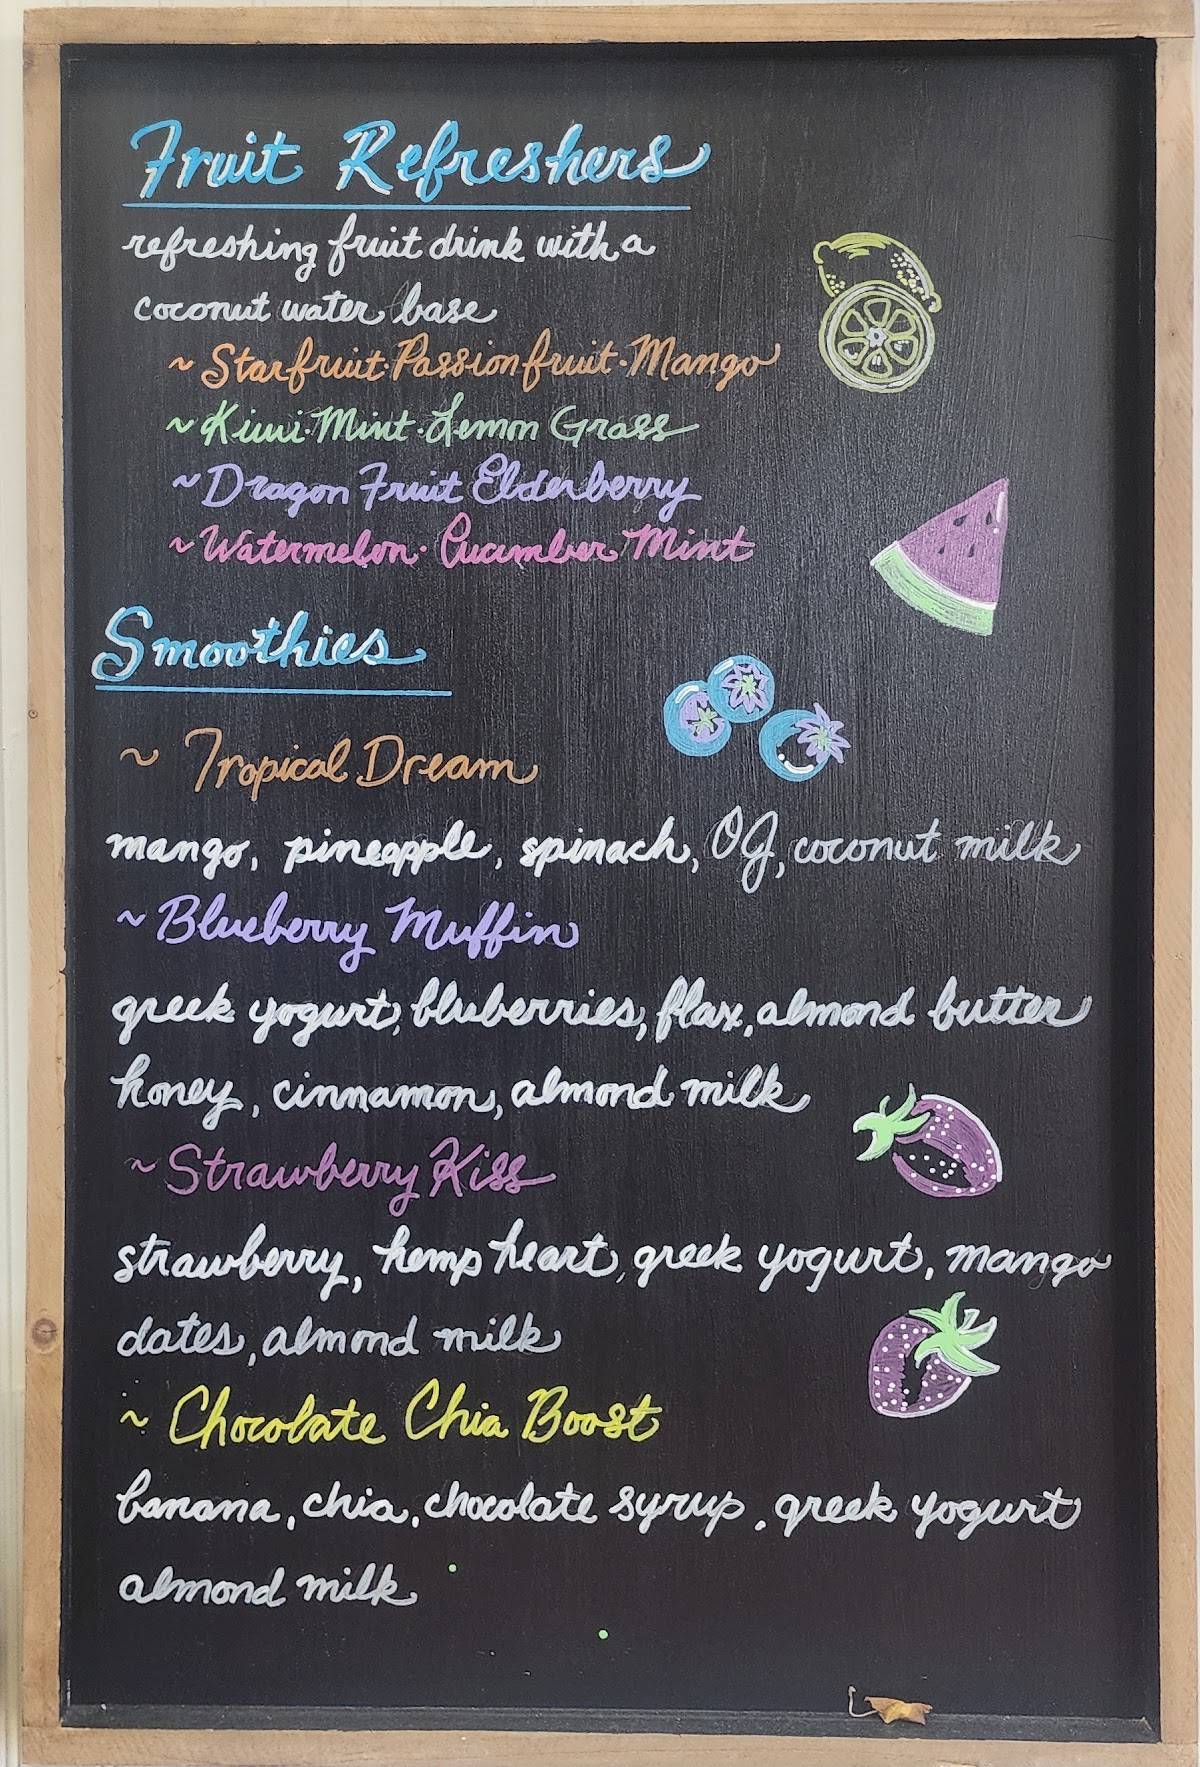 Fruit Refreshers
refreshing fruit drink with a
coconut water base
~Starfruit·Passionfruit·Mango
~Kiwi·Mint·Lemon Grass
~Dragon Fruit Elderberry
~Watermelon·Cucumber Mint
Smoothies
~ Tropical Dream
mango, pineapple, spinach, OJ, coconut milk
~Blueberry Muffin
greek yogurt, bluberries, flax, almond butter
honey, cinnamon, almond milk
~Strawberry Kiss
strawberry, hemp heart, greek yogurt, mango
dates, almond milk
~ Chocolate Chia Boost
banana, chia, chocolate syrup, greek yogurt
almond milk